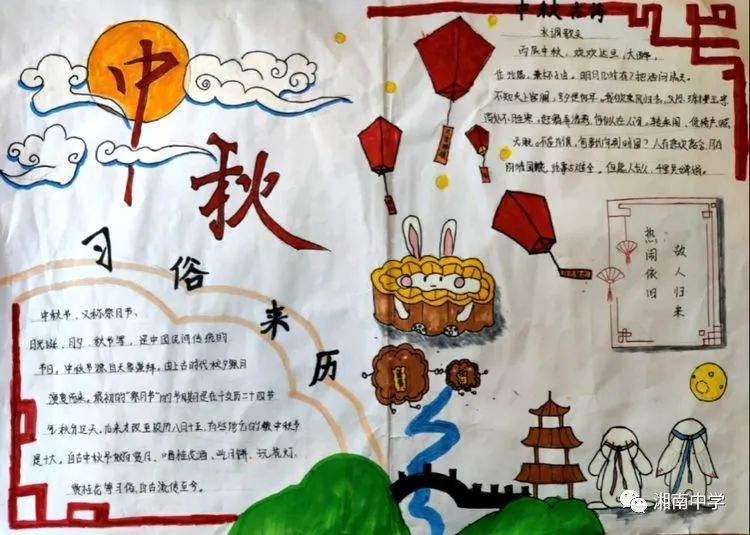 中秋
习俗来历
中秋节、又称祭月节、
月光诞、月夕、秋节等，是中国民间传统的
节日。中秋节源自天象崇拜，由上古时代秋夕祭月
演变而来。最初的“祭月节”的节期是在干支历二十四节
气秋分这天，后来才调至农历八月十五，
是十大。自古中秋节就有赏月、吃月饼、玩花灯、
赏桂花等习俗，自古流传至今。
中秋
水调歌头
丙辰中秋，欢饮达旦，大醉，
明月几时有？把酒问青天。
不知天上宫阙，今夕是何年。我欲乘风归去，又恐琼楼玉宇
高处不胜寒，起舞弄清影，何似在人间。转朱阁，低绮户，照
无眠。不应有恨，何事长向别时圆？人有悲欢离合，月有
阴晴圆缺，此事古难全。但愿人长久，千里共婵娟。
故人归来
热闹依旧
湘南中学